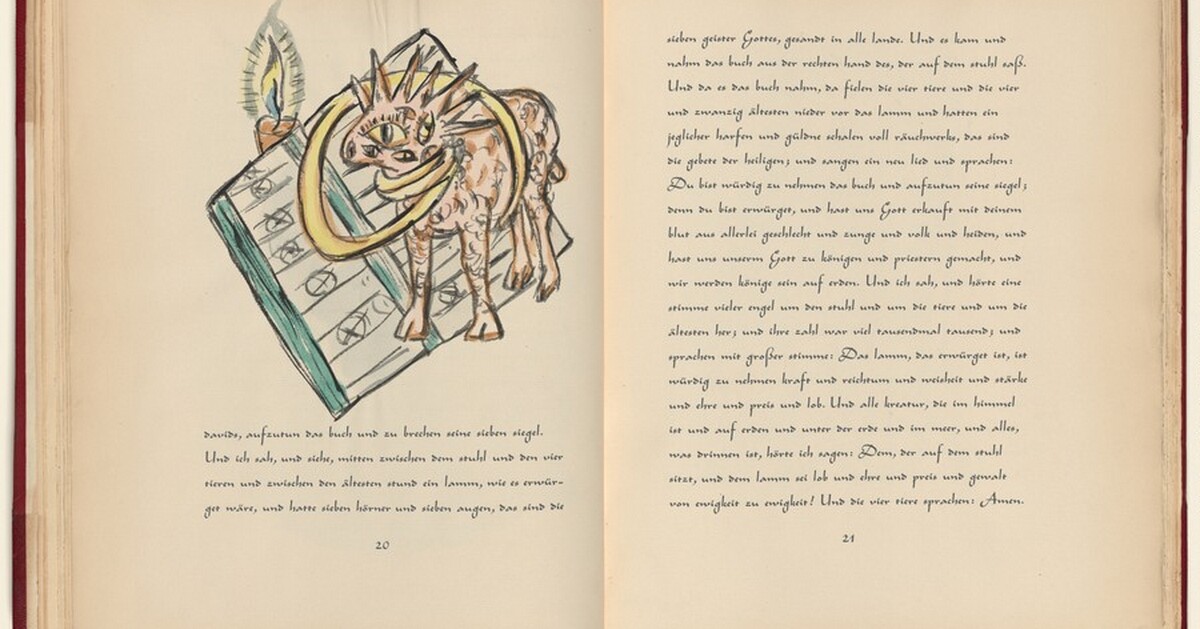 davids, aufzutun das buch und zu brechen seine sieben siegel.
Und ich sah, und siehe, mitten zwischen dem stuhl und den vier
tieren und zwischen den ältesten stund ein lamm, wie es erwür-
get wäre, und hatte sieben hörner und sieben augen, das sind die
20
sieben geister Gottes, gesandt in alle lande. Und es kam und
nahm das buch aus der rechten hand des, der auf dem stuhl saß.
Und da es das buch nahm, da fielen die vier tiere und die vier
und zwanzig ältesten nieder vor das lamm und hatten ein
jeglicher harfen und güldne schalen voll räuchwerks, das sind
die gebete der heiligen; und sangen ein neu lied und sprachen:
Du bist würdig zu nehmen das buch und aufzutun seine siegel;
denn du bist erwürget, und hast uns Gott erkauft mit deinem
blut aus allerlei geschlecht und zunge und volk und heiden, und
hast uns unserm Gott zu königen und priestern gemacht, und
wir werden könige sein auf erden. Und ich sah, und hörte eine
stimme vieler engel um den stuhl und um die tiere und um die
ältesten her; und ihre zahl war viel tausendmal tausend; und
sprachen mit großer stimme: Das lamm, das erwürget ist, ist
würdig zu nehmen kraft und reichtum und weisheit und stärke
und ehre und preis und lob. Und alle kreatur, die im himmel
ist und auf erden und unter der erde und im meer, und alles,
was drinnen ist, hörte ich sagen: Dem, der auf dem stuhl
sitzt, und dem lamm sei lob und ehre und preis und gewalt
von ewigkeit zu ewigkeit! Und die vier tiere sprachen: Amen.
21